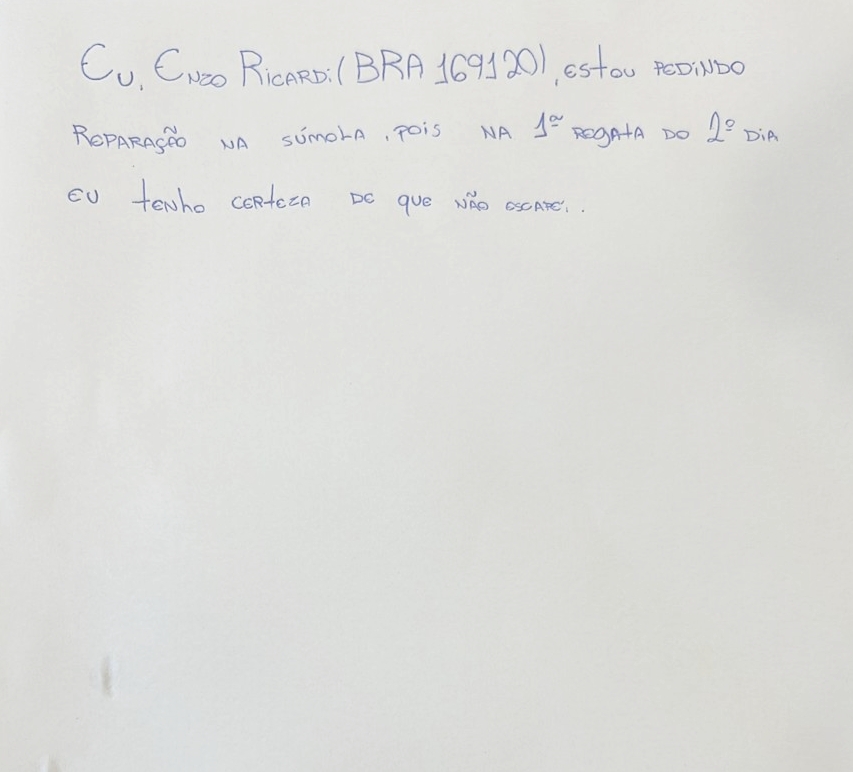 Eu, Enzo Ricardi (BRA 169120), estou pedindo
reparação na súmola, pois na 1ª regata do 2º dia
eu tenho certeza de que não escapei.